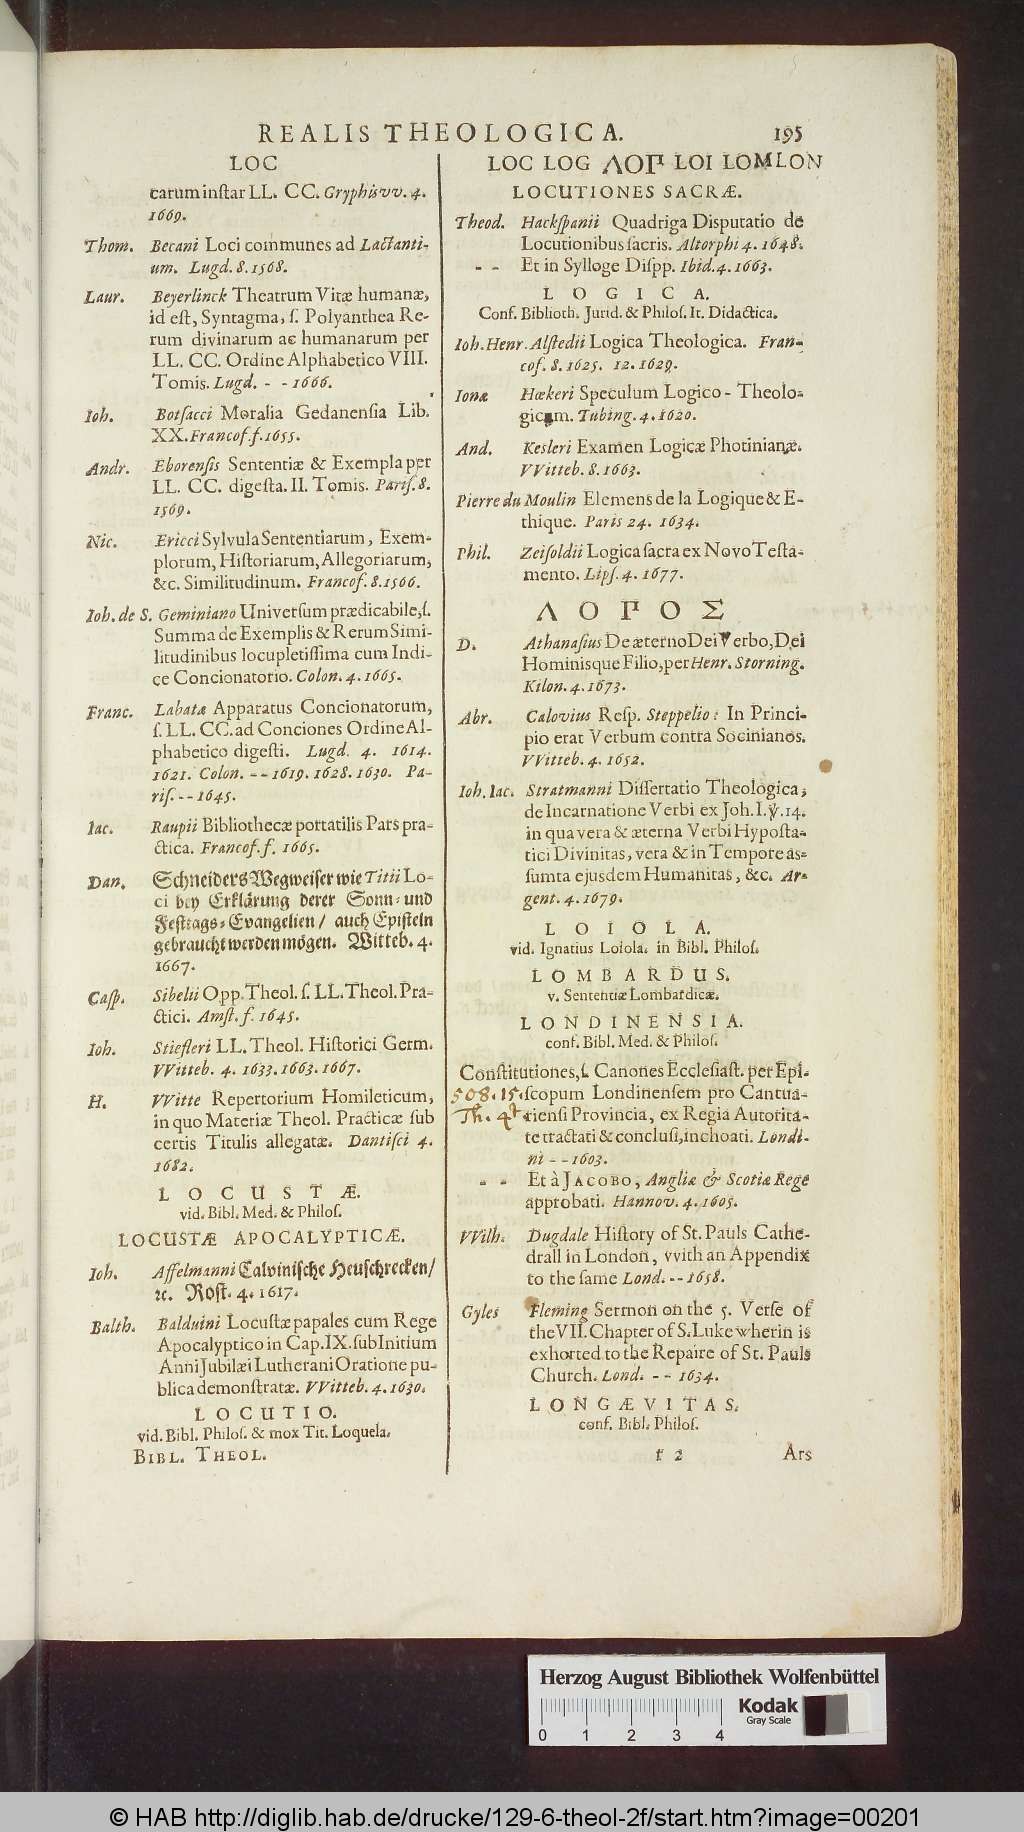 REALIS THEOLOGICA. 195
LOC
carum inſtar LL. CC. Gryphisvv. 4.
1669.
Thom. Becani Loci communes ad Lactanti-
um. Lugd. 8. 1568.
Laur. Beyerlinck Theatrum Vitæ humanæ,
id eſt, Syntagma, ſ. Polyanthea Re-
rum divinarum ac humanarum per
LL. CC. Ordine Alphabetico VIII.
Tomis. Lugd. - - 1666.
Ioh. Botſacci Moralia Gedanenſia Lib.
XX. Francof. f. 1655.
Andr. Eborenſis Sententiæ & Exempla per
LL. CC. digeſta. II. Tomis. Pariſ. 8.
1569.
Nic. Ericci Sylvula Sententiarum, Exem-
plorum, Hiſtoriarum, Allegoriarum,
&c. Similitudinum. Francof. 8. 1566.
Ioh. de S. Geminiano Univerſum prædicabile, ſ.
Summa de Exemplis & Rerum Simi-
litudinibus locupletiſſima cum Indi-
ce Concionatorio. Colon. 4. 1665.
Franc. Labatæ Apparatus Concionatorum,
ſ. LL. CC. ad Conciones Ordine Al-
phabetico digeſti. Lugd. 4. 1614.
1621. Colon. - - 1619. 1628. 1630. Pa-
riſ. - - 1645.
Iac. Raupii Bibliothecæ portatilis Pars pra-
ctica. Francof. f. 1665.
Dan. Schneiders Wegweiſer wie Titii Lo-
ci bey Erklärung derer Sonn- und
Feſttags-Evangelien / auch Epiſteln
gebraucht werden mögen. Witteb. 4.
1667.
Caſp. Sibelii Opp. Theol. ſ. LL. Theol. Pra-
ctici. Amſt. f. 1645.
Ioh. Stiefleri LL. Theol. Hiſtorici Germ.
VVitteb. 4. 1633. 1663. 1667.
H. VVitte Repertorium Homileticum,
in quo Materiæ Theol. Practicæ ſub
certis Titulis allegatæ. Dantiſci 4.
1682.
LOCUSTÆ.
vid. Bibl. Med. & Philoſ.
LOCUSTÆ APOCALYPTICÆ.
Ioh. Affelmanni Calviniſche Heuſchrecken/
ꝛc. Roſt. 4. 1617.
Balth. Balduini Locuſtæ papales cum Rege
Apocalyptico in Cap. IX. ſub Initium
Anni Jubilæi Lutherani Oratione pu-
blica demonſtratæ. VVitteb. 4. 1630.
LOCUTIO.
vid. Bibl. Philoſ. & mox Tit. Loquela.
BIBL. THEOL.
LOC LOG ΛΟΓ LOI LOM LON
LOCUTIONES SACRÆ.
Theod. Hackſpanii Quadriga Disputatio de
Locutionibus ſacris. Altorphi 4. 1648.
- - Et in Sylloge Diſpp. Ibid. 4. 1663.
LOGICA.
Conf. Biblioth. Jurid. & Philoſ. It. Didactica.
Ioh. Henr. Alſtedii Logica Theologica. Fran-
cof. 8. 1625. 12. 1629.
Ionæ Hœkeri Speculum Logico-Theolo-
gicum. Tubing. 4. 1620.
And. Kesleri Examen Logicæ Photinianæ.
VVitteb. 8. 1663.
Pierre du Moulin Elemens de la Logique & E-
thique. Paris 24. 1634.
Phil. Zeiſoldii Logica ſacra ex Novo Teſta-
mento. Lipſ. 4. 1677.
ΛΟΓΟΣ
D. Athanaſius De æterno Dei Verbo, Dei
Hominisque Filio, per Henr. Storning.
Kilon. 4. 1673.
Abr. Calovius Reſp. Steppelio: In Princi-
pio erat Verbum contra Socinianos.
VVitteb. 4. 1652.
Ioh. Iac. Stratmanni Diſſertatio Theologica,
de Incarnatione Verbi ex Joh. I. ℣. 14.
in qua vera & æterna Verbi Hypoſta-
tici Divinitas, vera & in Tempore as-
ſumta ejusdem Humanitas, &c. Ar-
gent. 4. 1679.
LOIOLA.
vid. Ignatius Loiola. in Bibl. Philoſ.
LOMBARDUS.
v. Sententiæ Lombardicæ.
LONDINENSIA.
conf. Bibl. Med. & Philoſ.
Conſtitutiones, ſ. Canones Eccleſiaſt. per Epi-
508.15. ſcopum Londinenſem pro Cantua-
Th. 4t rienſi Provincia, ex Regia Autorita-
te tractati & concluſi, inchoati. Londi-
ni - - 1603.
- - Et à JACOBO, Angliæ & Scotiæ Rege
approbati. Hannov. 4. 1605.
VVilh. Dugdale Hiſtory of St. Pauls Cathe-
drall in London, vvith an Appendix
to the ſame Lond. - - 1658.
Gyles Fleming Sermon on the 5. Verſe of
the VII. Chapter of S. Luke wherin is
exhorted to the Repaire of St. Pauls
Church. Lond. - - 1634.
LONGÆVITAS.
conf. Bibl. Philoſ.
t 2 Ars
Herzog August Bibliothek Wolfenbüttel
0 1 2 3 4
Kodak
Gray Scale
© HAB http://diglib.hab.de/drucke/129-6-theol-2f/start.htm?image=00201